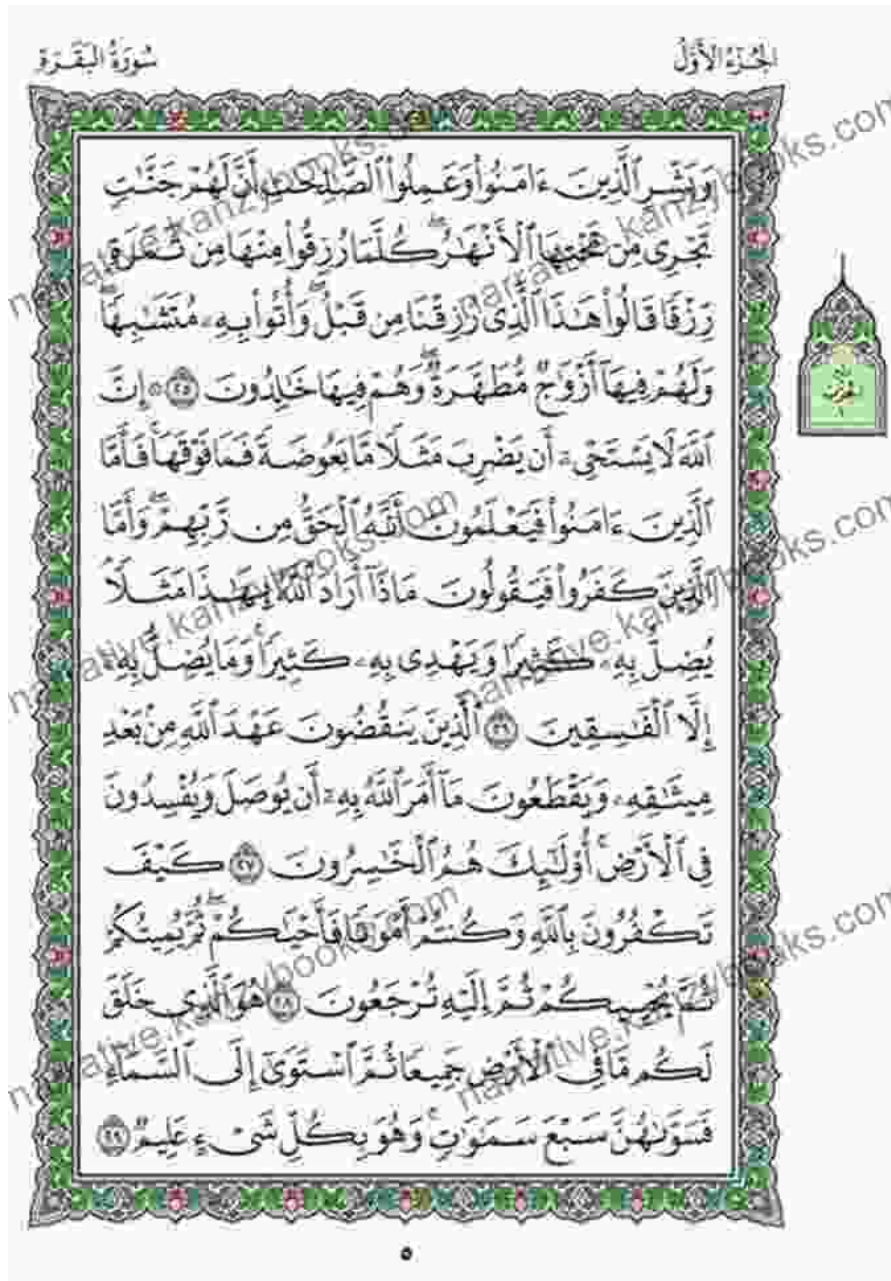 الجزء الأول
سورة البقرة
وَبَشِّرِ ٱلَّذِينَ ءَامَنُوا۟ وَعَمِلُوا۟ ٱلصَّٰلِحَٰتِ أَنَّ لَهُمْ جَنَّٰتٍ
تَجْرِى مِن تَحْتِهَا ٱلْأَنْهَٰرُ ۖ كُلَّمَا رُزِقُوا۟ مِنْهَا مِن ثَمَرَةٍ
رِّزْقًا قَالُوا۟ هَٰذَا ٱلَّذِى رُزِقْنَا مِن قَبْلُ ۖ وَأُتُوا۟ بِهِۦ مُتَشَٰبِهًا ۖ
وَلَهُمْ فِيهَآ أَزْوَٰجٌ مُّطَهَّرَةٌ ۖ وَهُمْ فِيهَا خَٰلِدُونَ ٢٥ ۞ إِنَّ
ٱللَّهَ لَا يَسْتَحْىِۦٓ أَن يَضْرِبَ مَثَلًا مَّا بَعُوضَةً فَمَا فَوْقَهَا ۚ فَأَمَّا
ٱلَّذِينَ ءَامَنُوا۟ فَيَعْلَمُونَ أَنَّهُ ٱلْحَقُّ مِن رَّبِّهِمْ ۖ وَأَمَّا
ٱلَّذِينَ كَفَرُوا۟ فَيَقُولُونَ مَاذَآ أَرَادَ ٱللَّهُ بِهَٰذَا مَثَلًا ۘ
يُضِلُّ بِهِۦ كَثِيرًا وَيَهْدِى بِهِۦ كَثِيرًا ۚ وَمَا يُضِلُّ بِهِۦٓ
إِلَّا ٱلْفَٰسِقِينَ ٢٦ ٱلَّذِينَ يَنقُضُونَ عَهْدَ ٱللَّهِ مِنۢ بَعْدِ
مِيثَٰقِهِۦ وَيَقْطَعُونَ مَآ أَمَرَ ٱللَّهُ بِهِۦٓ أَن يُوصَلَ وَيُفْسِدُونَ
فِى ٱلْأَرْضِ ۚ أُو۟لَٰٓئِكَ هُمُ ٱلْخَٰسِرُونَ ٢٧ كَيْفَ
تَكْفُرُونَ بِٱللَّهِ وَكُنتُمْ أَمْوَٰتًا فَأَحْيَٰكُمْ ۖ ثُمَّ يُمِيتُكُمْ
ثُمَّ يُحْيِيكُمْ ثُمَّ إِلَيْهِ تُرْجَعُونَ ٢٨ هُوَ ٱلَّذِى خَلَقَ
لَكُم مَّا فِى ٱلْأَرْضِ جَمِيعًا ثُمَّ ٱسْتَوَىٰٓ إِلَى ٱلسَّمَآءِ
فَسَوَّىٰهُنَّ سَبْعَ سَمَٰوَٰتٍ ۚ وَهُوَ بِكُلِّ شَىْءٍ عَلِيمٌ ٢٩
٥
narrative.kanzybooks.com